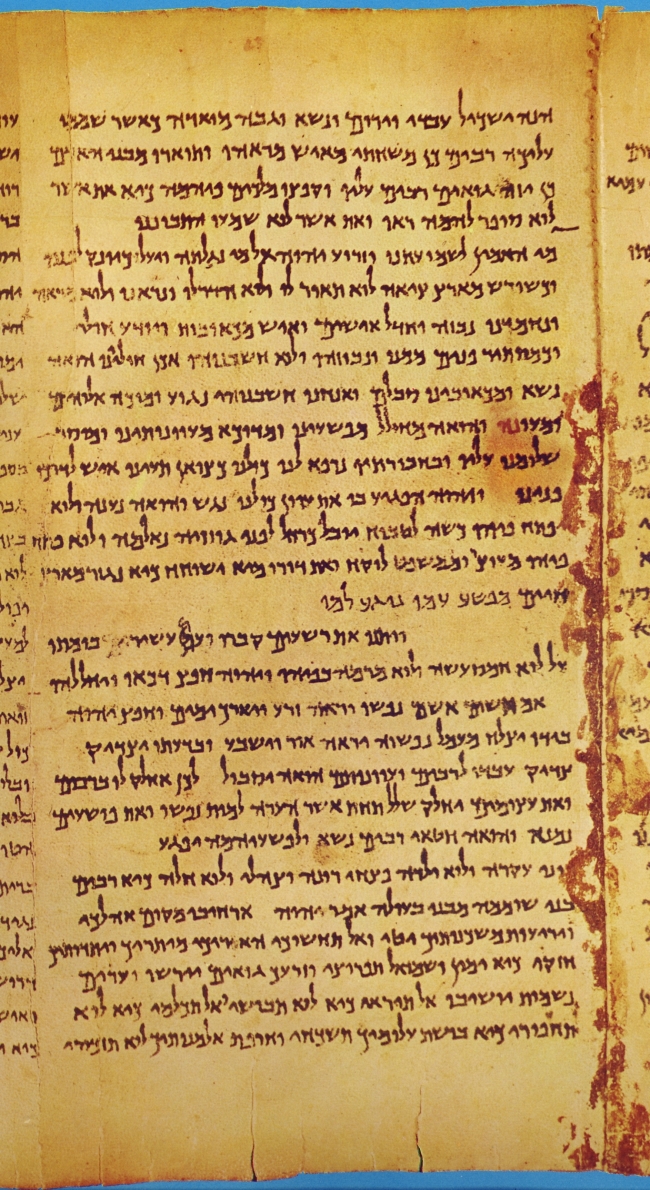 הנה ישכיל עבדי וירום ונשא וגבה מואדה כאשר שממו
עליכה רבים כן משחתי מאיש מראהו ותוארו מבני האדם
כן יזה גואים רבים עליו וקפצו מלכים פיהמה כיא את אשר
לוא סופר להמה ראו ואת אשר לוא שמעו התבוננו
מי האמין לשמועתנו וזרוע יהוה אל מי נגלתה ויעל כיונק לפניו
וכשורש מארץ ציאה לוא תואר לו ולוא הדר לו ונראנו ולוא מראה
ונחמדנו נבזה וחדל אישים ואיש מכאובות ויודע חולי
וכמסתיר פנים ממנו ונבוזהו ולוא חשבנוהו אכן חוליינו הואה
נשא ומכאובינו סבלם ואנחנו חשבנוהו נגוע ומוכה אלוהים
ומעונה והואה מחולל מפשעינו ומדוכא מעוונותינו ומוסר
שלומנו עליו ובחבורתיו נרפא לנו כולנו כצואן תעינו איש לדרכו
פנינו ויהוה הפגיע בו את עוון כולנו נגש והואה נענה ולוא
פתח פיהו כשה לטבוח יובל כרחל לפני גוזזיה נאלמה ולוא פתח
פיהו מעוצר וממשפט לוקח ואת דורו מיא ישוחח כיא נגזר מארץ
חיים מפשע עמו נוגע למו
ויתנו את רשעים קברו ועם עשיר בומתו
על לוא חמס עשה ולוא מרמה בפיהו ויהוה חפץ דכאו ויחללהו
אם תשים אשם נפשו יראה זרע ויארך ימים וחפץ יהוה
בידו יצלח מעמל נפשוה יראה אור וישבע ובדעתו יצדיק
צדיק עבדו לרבים ועוונותם הואה יסבול לכן אחלק לו ברבים
ואת עצומים יחלק שלל תחת אשר הערה למות נפשו ואת פושעים
נמנא והואה חטאי רבים נשא ולפשעיהמה יפגע
רוני עקרה ולוא ילדה פצחי רונה וצהלי ולוא חלה כיא רבים
בני שוממה מבני בעולה אמר יהוה ארחיבי מקום אהלכי
ויריעות משכנותיך יטי ואל תחשוכי האריכי מיתריך ויתדותיך
חזקי כיא ימין ושמאל תפרוצי וזרעך גואים יירשו ועירים
נשמות יושיבו אל תיראי כיא לוא תבושי ואל תכלמי כיא לוא
תחפירי כיא בושת עלומיך תשכחי וחרפת אלמנותיך לוא תזכירי